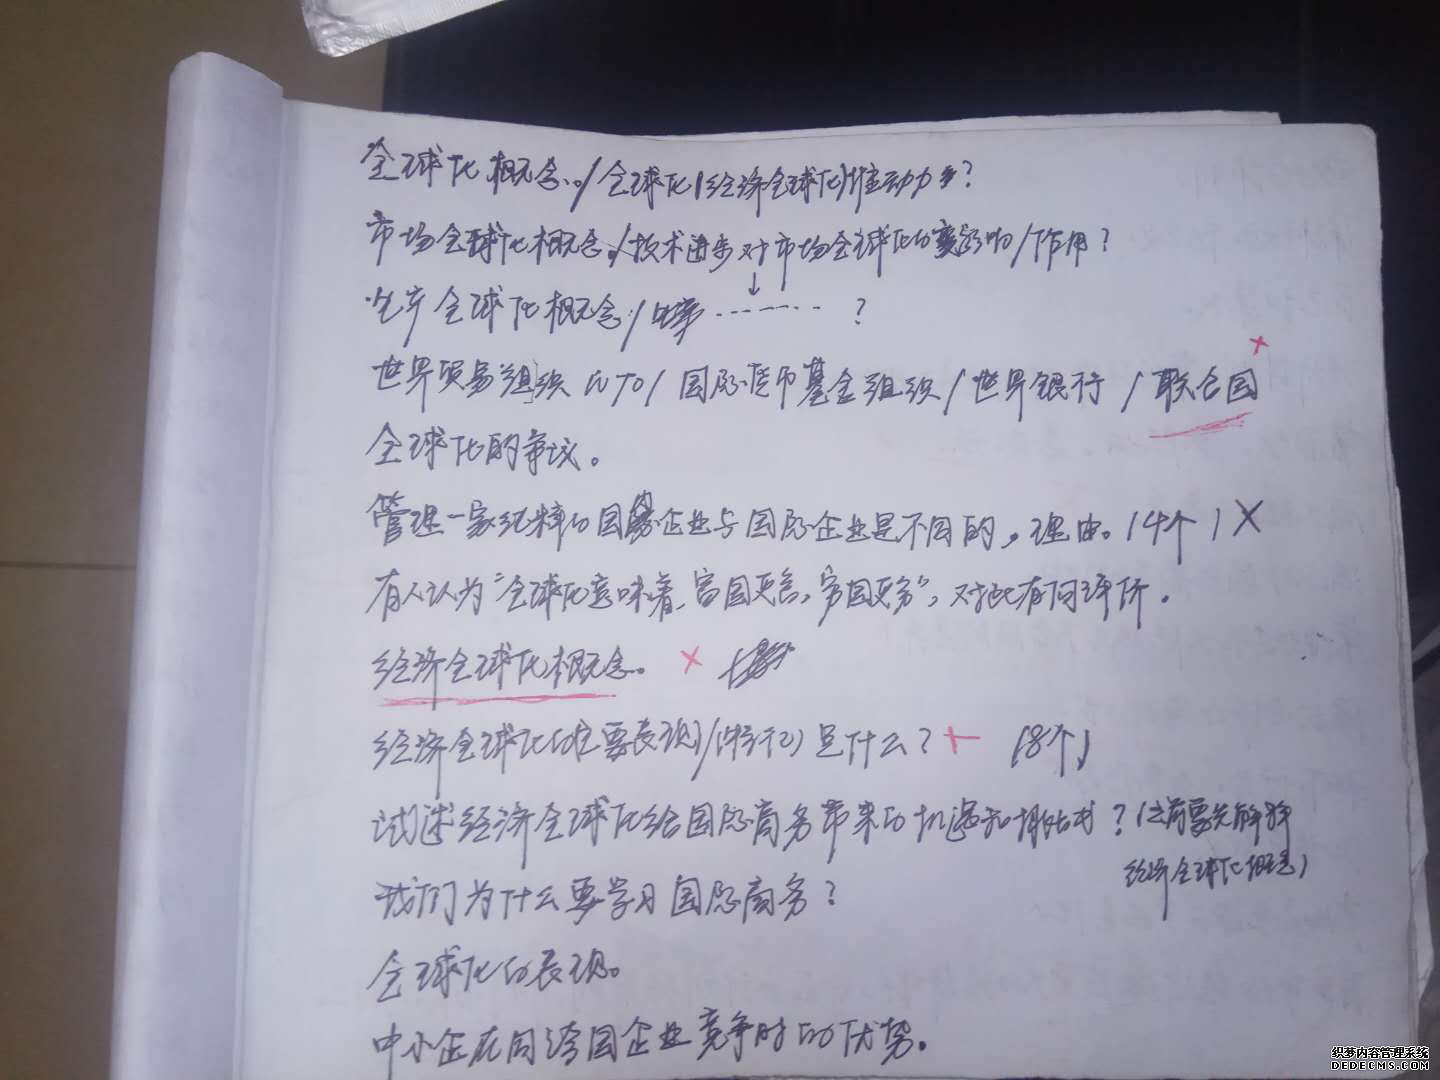 全球化概念。/全球化(经济全球化)推动力量?
市场全球化概念。/技术进步对市场全球化的影响/作用?
生产全球化概念/ ------- ?
世界贸易组织WTO/国际货币基金组织/世界银行/联合国
全球化的争议。
管理一家纯粹的国内企业与国际企业是不同的。理由。(4个)
有人认为"全球化意味着,富国更富,穷国更穷",对此有何评价。
经济全球化概念。
经济全球化的主要表现/(特征)是什么? (8个)
试述经济全球化给国际商务带来的机遇和挑战? (之前要先解释
经济全球化概念)
我们为什么要学习国际商务?
全球化的表现。
中小企在同跨国企业竞争时的优势。
织梦内容管理系统
DEDECMS.COM